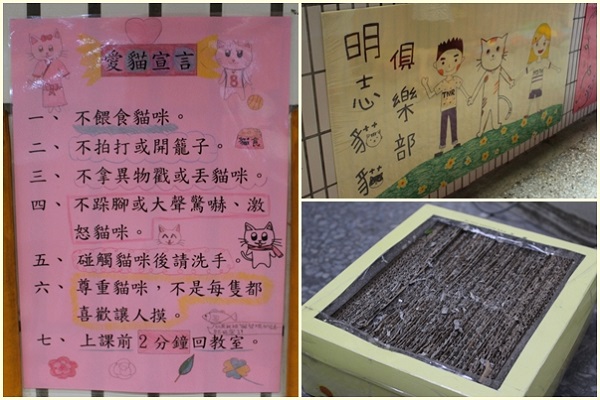 愛貓宣言
一、不餵食貓咪。
二、不拍打或開籠子。
三、不拿異物戳或丟貓咪。
四、不跺腳或大聲驚嚇、激
怒貓咪。
五、碰觸貓咪後請洗手。
六、尊重貓咪，不是每隻都
喜歡讓人摸。
七、上課前2分鐘回教室。
8
明志貓貓
俱樂部
TNR